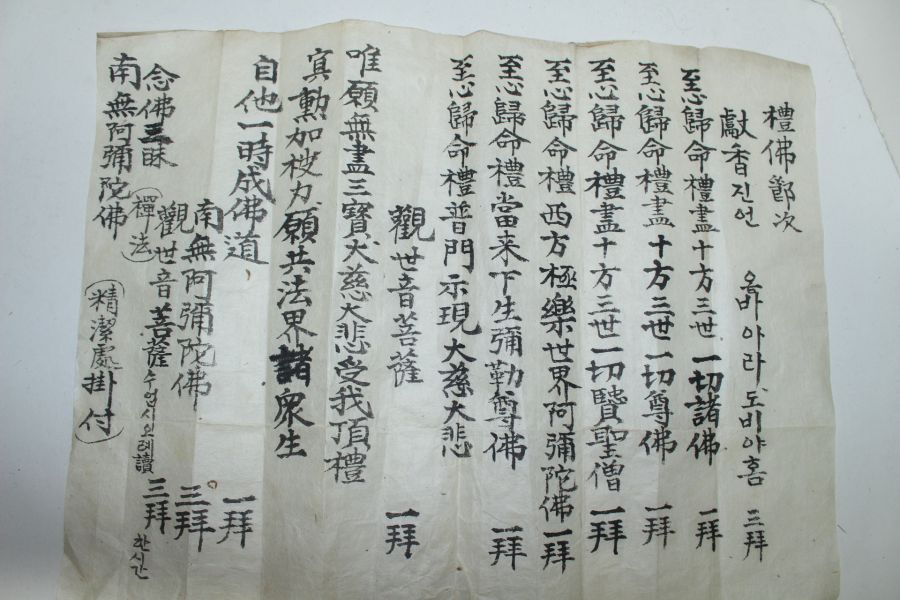 禮佛節次
獻香진언 옴바아라도비야홈 三拜
至心歸命禮盡十方三世一切諸佛 一拜
至心歸命禮盡十方三世一切尊佛 一拜
至心歸命禮盡十方三世一切賢聖僧 一拜
至心歸命禮西方極樂世界阿彌陀佛 一拜
至心歸命禮當来下生彌勒尊佛 一拜
至心歸命禮普門示現大慈大悲
觀世音菩薩 一拜
唯願無盡三寶大慈大悲受我頂禮
冥勲加被力願共法界諸衆生
自他一時成佛道 一拜
南無阿彌陀佛 三拜
觀世音菩薩 三拜
念佛三昧 禪法 讀 한시간
南無阿彌陀佛 精潔處掛付